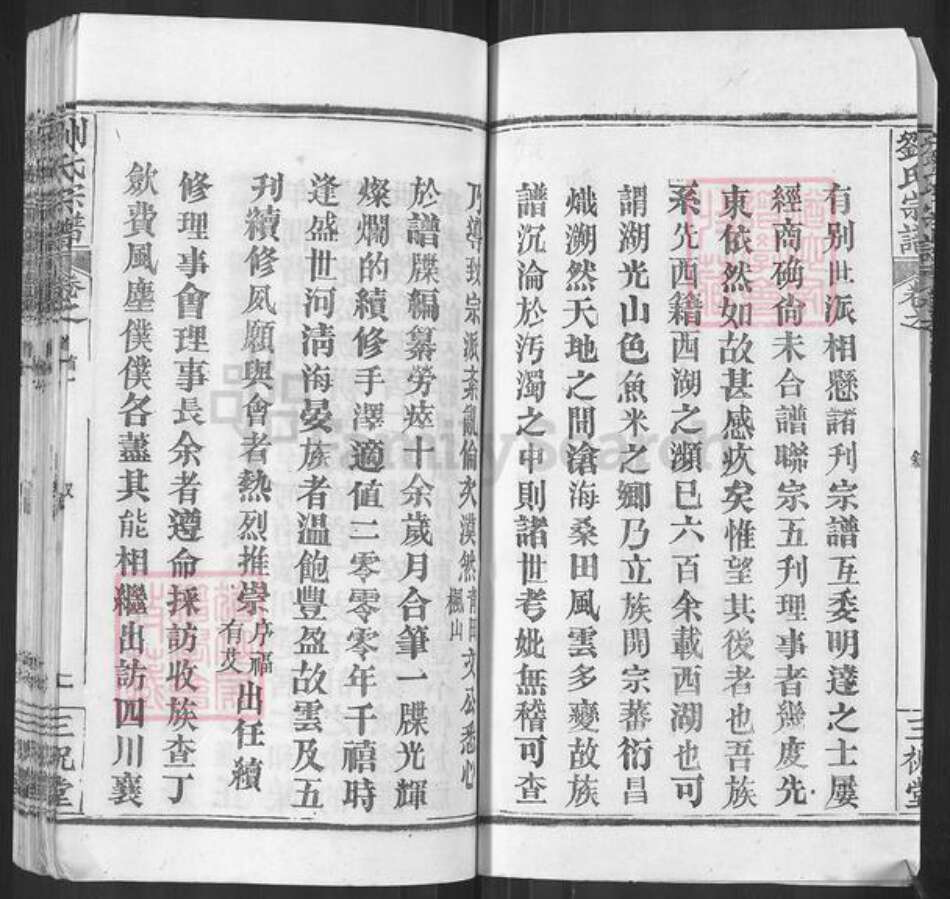 劉氏宗譜
卷之
三祝堂
有別世派相懸諸刋宗譜互委明達之士屢
經商确尙未合譜聯宗五刋理事者幾度先
東依然如故甚感疚矣惟望其後者也吾族
系先西籍西湖之瀕已六百余載西湖也可
謂湖光山色魚米之鄉乃立族開宗蕃衍昌
熾溯然天地之間滄海桑田風雲多變故族
譜沉淪於污濁之中則諸世考妣無稽可查
乃導致宗派紊亂倫次漠然 楓山 文公悉心
於譜牒編纂勞瘁十余歲月合筆一牒光輝
燦爛的續修手澤適值二零零零年千禧時
逢盛世河淸海晏族者溫飽豐盈故雲及五
刋續修夙願與會者熱烈推崇序福有艾出任續
修理事會理事長余者遵命採訪收族查丁
歛費風塵僕僕各盡其能相繼出訪四川襄
劉氏宗譜
卷之
三祝堂
FamilySearch